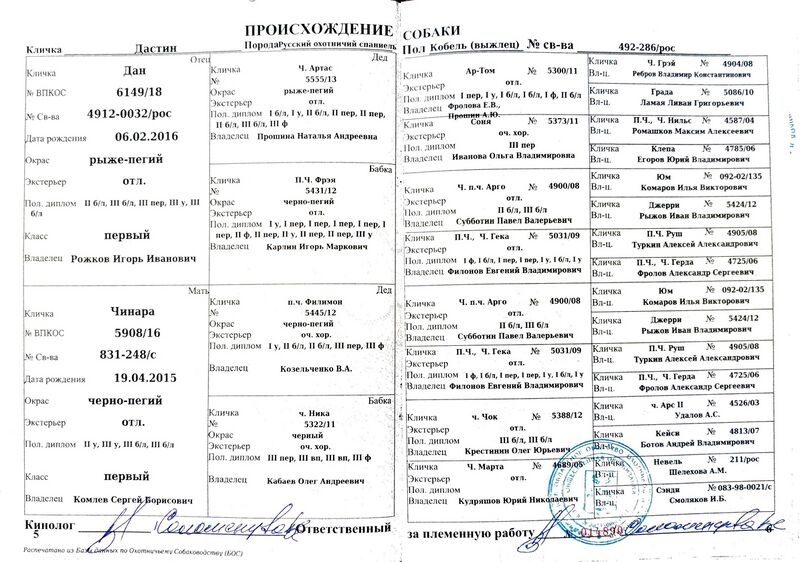 ПРОИСХОЖДЕНИЕ СОБАКИ
Кличка Дастин Порода Русский охотничий спаниель Пол Кобель (выжлец) № св-ва 492-286/рос
Отец
Кличка Дан
№ ВПКОС 6149/18
№ Св-ва 4912-0032/рос
Дата рождения 06.02.2016
Окрас рыже-пегий
Экстерьер отл.
Пол. диплом II б/л, III б/л, III пер, III у, III
б/л
Класс первый
Владелец Рожков Игорь Иванович
Мать
Кличка Чинара
№ ВПКОС 5908/16
№ Св-ва 831-248/с
Дата рождения 19.04.2015
Окрас черно-пегий
Экстерьер отл.
Пол. диплом II у, III у, III б/л, III б/л
Класс первый
Владелец Комлев Сергей Борисович
Дед
Кличка Ч. Артас
№ 5555/13
Окрас рыже-пегий
Экстерьер отл.
Пол. диплом I б/л, I у, II б/л, II пер, II пер,
II б/л, III б/л, III ф
Владелец Прошина Наталья Андреевна
Бабка
Кличка П.Ч. Фрэя
№ 5431/12
Окрас черно-пегий
Экстерьер отл.
Пол. диплом I у, I пер, I пер, I пер, I пер, I
пер, II ф, II пер, II у, II пер, II пер, III у
Владелец Карлин Игорь Маркович
Дед
Кличка п.ч. Филимон
№ 5445/12
Окрас черно-пегий
Экстерьер оч. хор.
Пол. диплом I у, II б/л, II б/л, III пер, III ф
Владелец Козельченко В.А.
Бабка
Кличка ч. Ника
№ 5322/11
Окрас черный
Экстерьер оч. хор.
Пол. диплом III пер, III вп, III вп, III ф
Владелец Кабаев Олег Андреевич
Кличка Ар-Том № 5300/11
Экстерьер отл.
Пол. диплом I пер, I у, I б/л, I б/л, I ф, II б/л
Владелец Фролова Е.В.,
Прошин А.Ю.
Кличка Соня № 5373/11
Экстерьер оч. хор.
Пол. диплом III пер
Владелец Иванова Ольга Владимировна
Кличка Ч. п.ч. Арго № 4900/08
Экстерьер отл.
Пол. диплом II б/л, III б/л
Владелец Субботин Павел Валерьевич
Кличка П.Ч., Ч. Гека № 5031/09
Экстерьер отл.
Пол. диплом I ф, I б/л, I пер, I пер, I у, I б/л, I у
Владелец Филонов Евгений Владимирович
Кличка Ч. п.ч. Арго № 4900/08
Экстерьер отл.
Пол. диплом II б/л, III б/л
Владелец Субботин Павел Валерьевич
Кличка П.Ч., Ч. Гека № 5031/09
Экстерьер отл.
Пол. диплом I ф, I б/л, I пер, I пер, I у, I б/л, I у
Владелец Филонов Евгений Владимирович
Кличка ч. Чок № 5388/12
Экстерьер оч. хор.
Пол. диплом III б/л, III б/л
Владелец Крестинин Олег Юрьевич
Кличка Ч. Марта № 4689/05
Экстерьер отл.
Пол. диплом
Владелец Кудряшов Юрий Николаевич
Кличка Ч. Грэй № 4904/08
Вл-ц. Ребров Владимир Константинович
Кличка Града № 5086/10
Вл-ц. Ламая Ливан Григорьевич
Кличка П.Ч., Ч. Нильс № 4587/04
Вл-ц. Ромашков Максим Алексеевич
Кличка Клепа № 4785/06
Вл-ц. Егоров Юрий Владимирович
Кличка Юм № 092-02/135
Вл-ц. Комаров Илья Викторович
Кличка Джерри № 5424/12
Вл-ц. Рыжов Иван Владимирович
Кличка П.Ч. Руш № 4905/08
Вл-ц. Туркин Алексей Александрович
Кличка П.Ч., Ч. Герда № 4725/06
Вл-ц. Фролов Александр Сергеевич
Кличка Юм № 092-02/135
Вл-ц. Комаров Илья Викторович
Кличка Джерри № 5424/12
Вл-ц. Рыжов Иван Владимирович
Кличка П.Ч. Руш № 4905/08
Вл-ц. Туркин Алексей Александрович
Кличка П.Ч., Ч. Герда № 4725/06
Вл-ц. Фролов Александр Сергеевич
Кличка ч. Арс II № 4526/03
Вл-ц. Удалов А.С.
Кличка Кейси № 4813/07
Вл-ц. Ботов Андрей Владимирович
Кличка Невель № 211/рос
Вл-ц. Шелехова А.М.
Кличка Сэнди № 083-98-0021/с
Вл-ц. Смоляков И.Б.
Кинолог Ответственный за племенную работу № 011890
5 6
Распечатано из Базы данных по Охотничьему Собаководству (БОС)